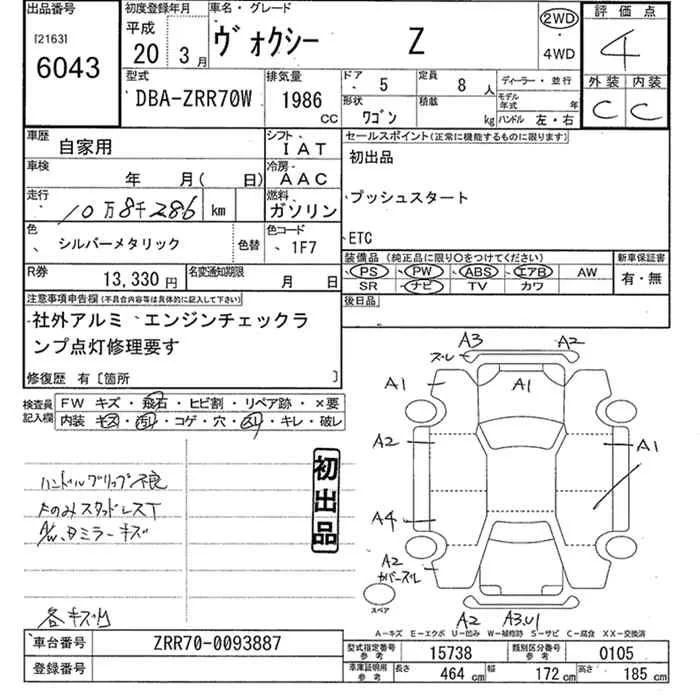 出品番号
[2163]
6043
初度登録年月
平成
20 3月
車名・グレード
ヴォクシー Z
2WD
・
4WD
評価点
4
外装 内装
C C
型式
DBA-ZRR70W
排気量
1986
CC
ドア
5
定員
8人
形状
ワゴン
積載
kg
ディーラー・並行
モデル年式 年
ハンドル 左・右
車歴
自家用
シフト
IAT
車検
年 月( 日)
冷房
AAC
走行
10万8千286 km
燃料
ガソリン
色
シルバーメタリック
色替
色コード
1F7
R券
13,330円
名変通知期限
月 日
セールスポイント(正常に機能するものに限ります)
初出品
プッシュスタート
ETC
装備品(純正品に限り○をつけてください)
PS PW ABS エアB AW
SR ナビ TV カワ
新車保証書
有・無
後日品
注意事項申告欄(不具合内容等は具体的に記入して下さい)
社外アルミ エンジンチェックラ
ンプ点灯修理要す
修復歴 有[箇所 ]
検査員
記入欄
FW キズ・飛石・ヒビ割・リペア跡・×要
内装 キズ・汚れ・コゲ・穴・スリ・キレ・破レ
ハンドルグリップ不良
よのみスタッドレスT
A/W、Dミラーキズ
各キズ凹
初出品
A3 A2
ズレ
A1 A1
A2 A1
A4
A2
カバーズレ
スペア
A2 A3.U1
A−キズ E−エクボ U−凹み W−補修跡 S−サビ C−腐食 XX−交換済
車台番号
ZRR70-0093887
登録番号
型式指定番号
参考
15738
類別区分番号
参考
0105
車庫証明用
参考
長さ
464 cm
幅
172 cm
高さ
185 cm